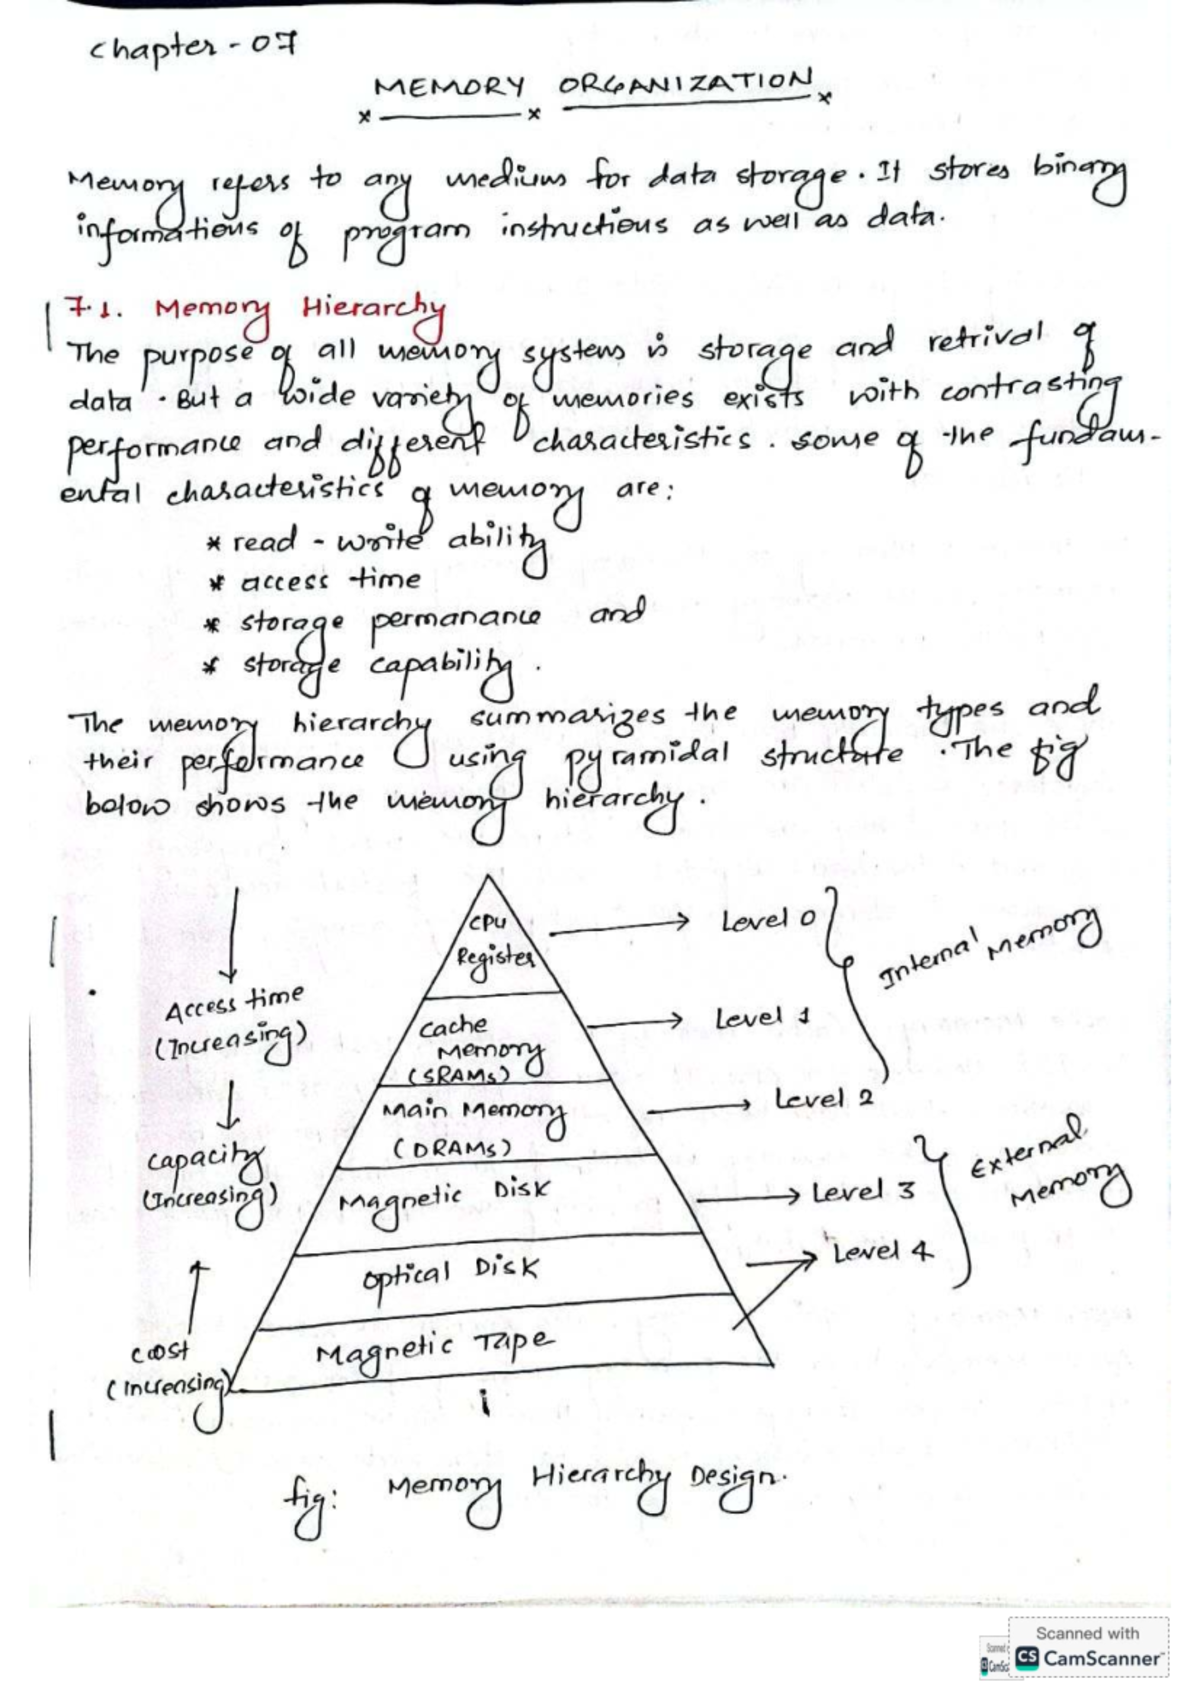 Chapter - 07
MEMORY ORGANIZATION
Memory refers to any medium for data storage. It stores binary
informations of program instructions as well as data.
7.1. Memory Hierarchy
The purpose of all memory systems is storage and retrival of
data. But a wide variety of memories exists with contrasting
performance and different characteristics. some of the fundam-
ental characteristics of memory are:
* read - write ability
* access time
* storage permanance and
* storage capability.
The memory hierarchy summarizes the memory types and
their performance using pyramidal structure. The fig
below shows the memory hierarchy.
CPU
Register
Level 0
Internal Memory
Access time
(Increasing)
Cache
Memory
(SRAMs)
Level 1
Main Memory
(DRAMs)
Level 2
Capacity
(Increasing)
Magnetic Disk
Level 3
External
Memory
Optical Disk
Level 4
Magnetic Tape
cost
(Increasing)
fig: Memory Hierarchy Design.
Scanned with
CS CamScanner